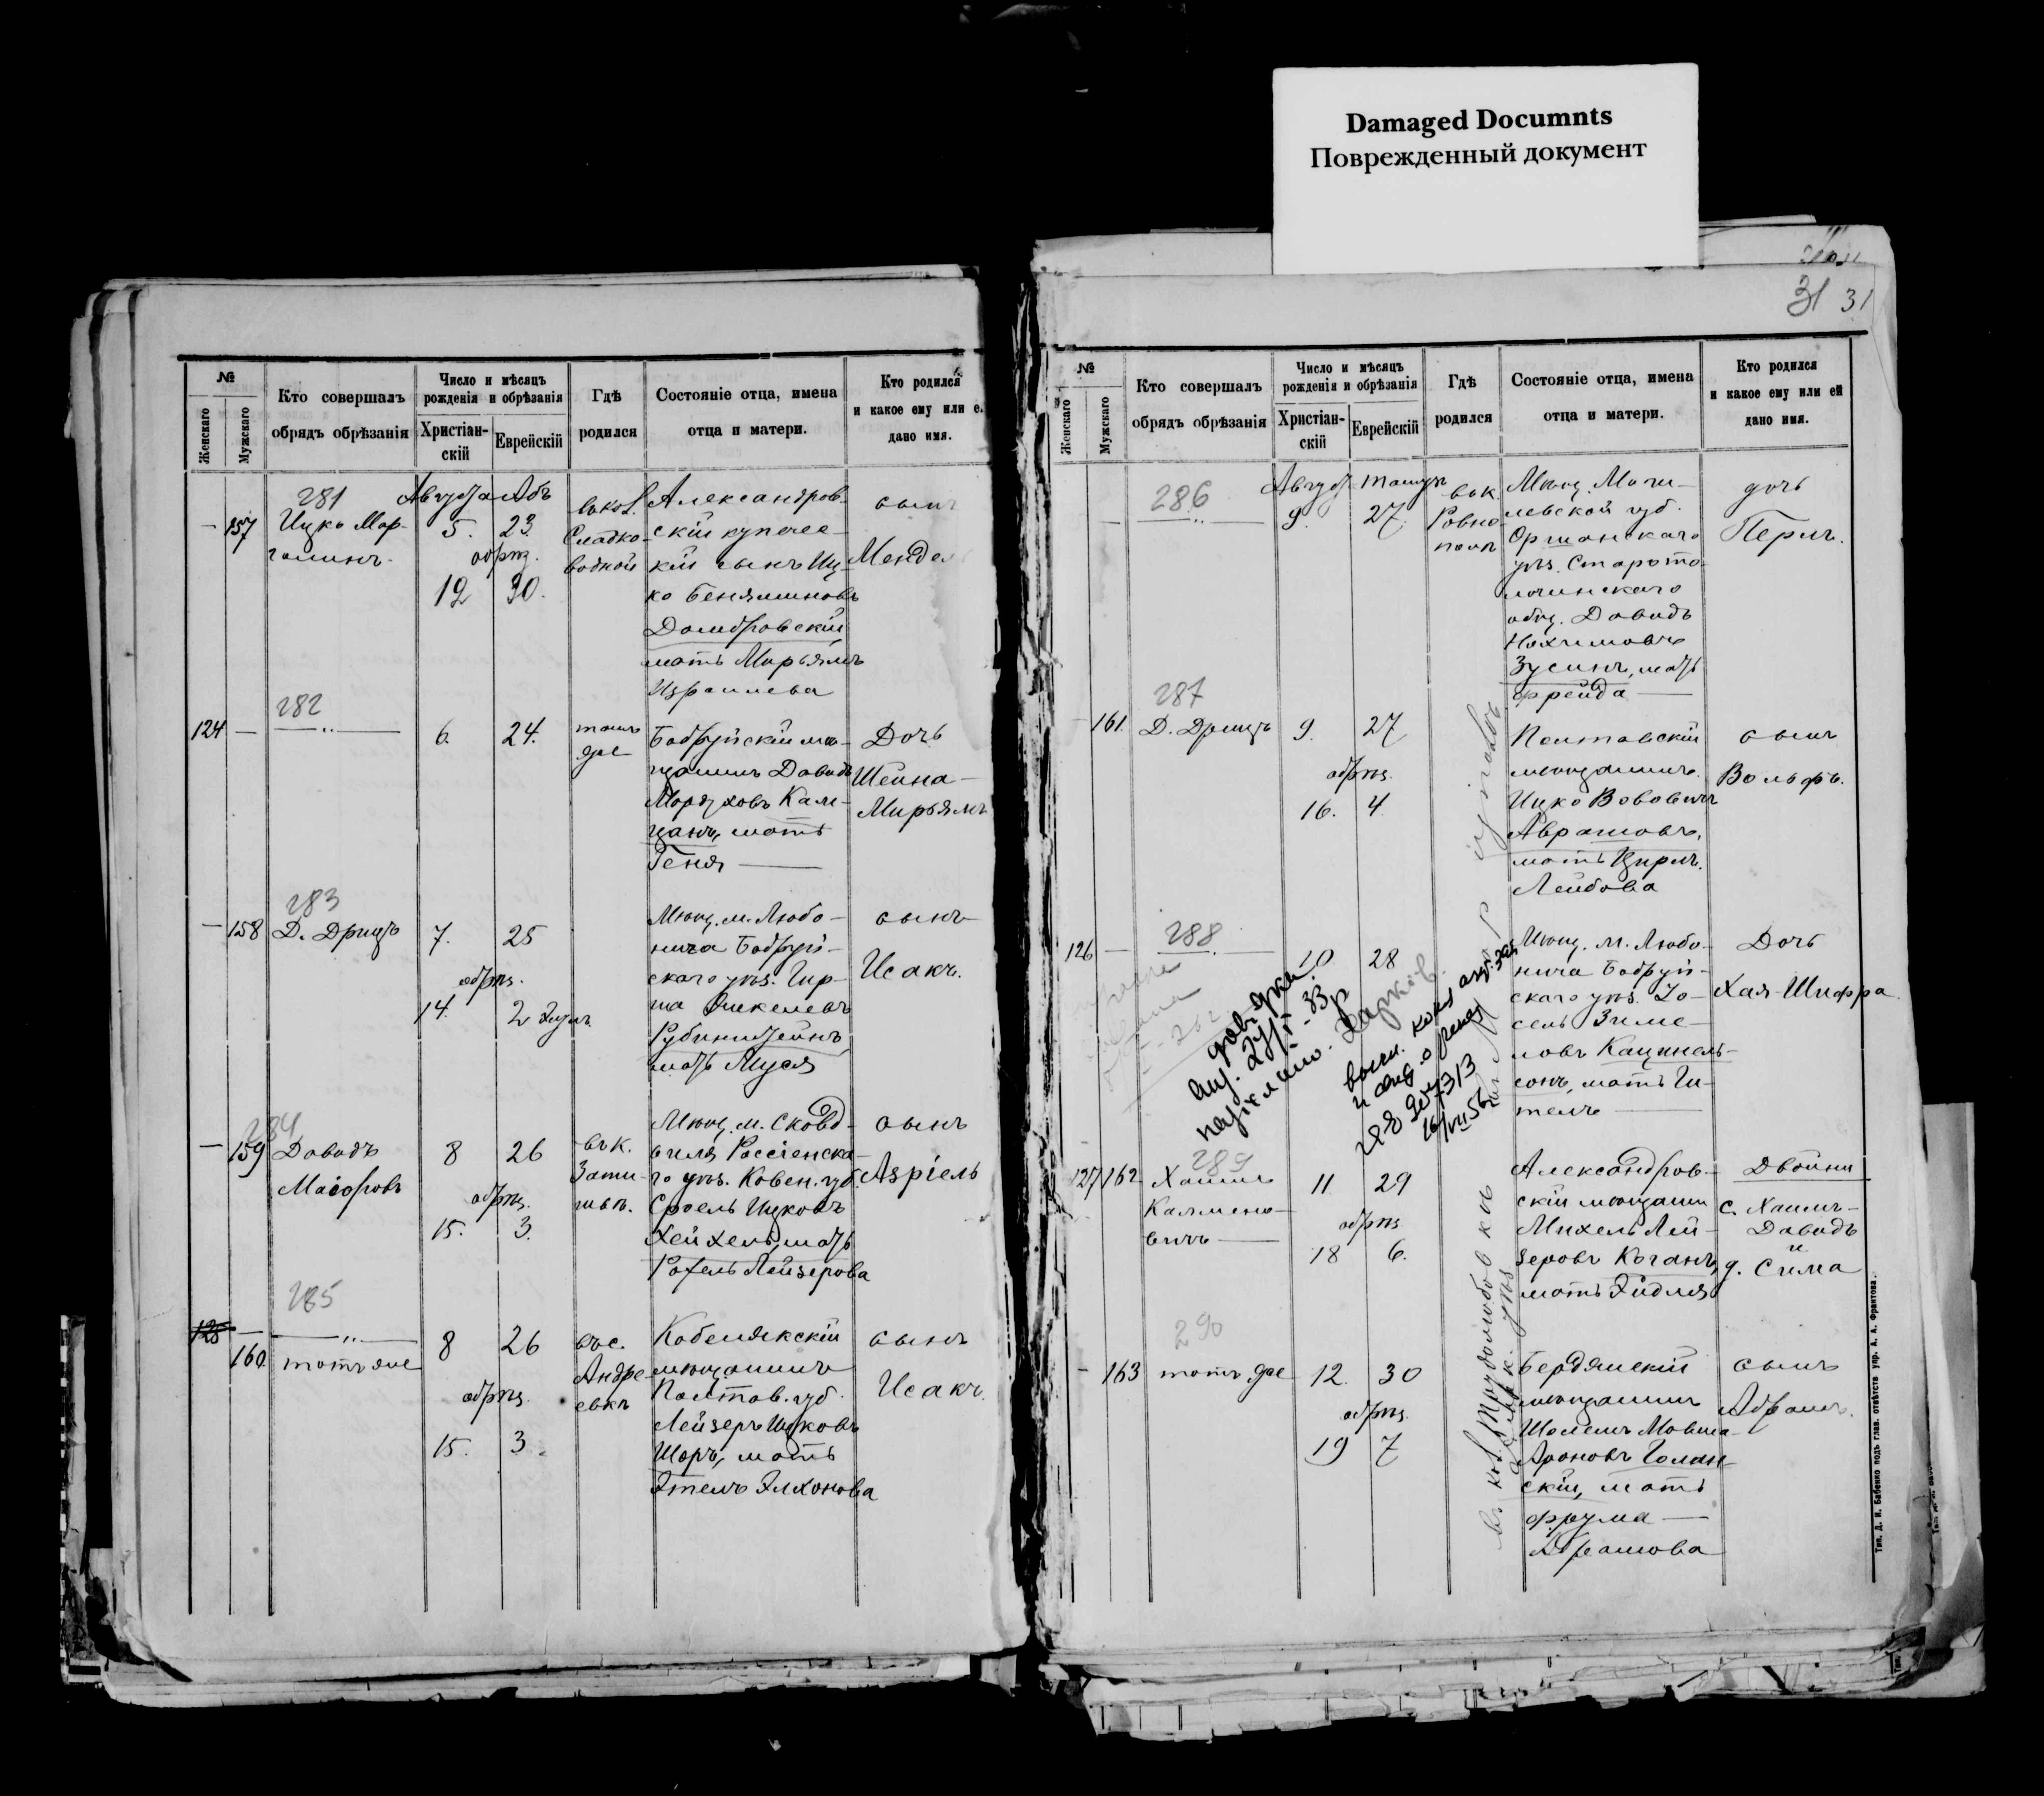 Damaged Documnts
Поврежденный документ
31 31
№
Женскаго
Мужскаго
Кто совершалъ
обрядъ обрѣзанія
Число и мѣсяцъ
рожденія и обрѣзанія
Христіан-
скій
Еврейскій
Гдѣ
родился
Состояніе отца, имена
отца и матери.
Кто родился
и какое ему или е
дано имя.
281
157
Ицко Мар-
голинъ
Августа Абъ
5. 23.
обрѣз.
12 30.
въ кол.
Сладко-
водной
Александров-
скій купечес-
кій сынъ Иц-
ко Беняминовъ
Домбровскій
мать Мирьямъ
Израилева
сынъ
Мендел
282
124 —
6. 24.
тамъ
же
Бобруйскій мѣ-
щанинъ Давидъ
Мордуховъ Кам-
цанъ, мать
Геня
Дочь
Шейна-
Мирьямъ
283
— 158
Д. Дрицъ
7. 25
обрѣз.
14. 2 Элулъ
Мѣщ. м. Любо-
нича Бобруй-
скаго уѣз. Гир-
ша
Рубинштейнъ
мать Муся
сынъ
Исакъ.
284
— 159
Давидъ
Маіоровъ
8 26
обрѣз.
15. 3.
въ к.
Зати-
шьѣ.
Мѣщ. м. Сковд-
виля Россіенска-
го уѣз. Ковен. губ.
Сроель Ицковъ
Хейхель, мать
Рохель Лейзерова
сынъ
Азріель
285
125 —
160
тотъ же
8 26
обрѣз.
15. 3.
въ с.
Андре-
евкѣ
Кобелякскій
мѣщанинъ
Полтав. губ.
Лейзеръ Ицковъ
Шоръ, мать
Этель Элхонова
сынъ
Исакъ.
№
Женскаго
Мужскаго
Кто совершалъ
обрядъ обрѣзанія
Число и мѣсяцъ
рожденія и обрѣзанія
Христіан-
скій
Еврейскій
Гдѣ
родился
Состояніе отца, имена
отца и матери.
Кто родился
и какое ему или ей
дано имя.
286
Август
9. 27
въ к.
Ровно-
полѣ
Мѣщ. Моги-
левской губ.
Оршанскаго
уѣз. Старото-
лочинскаго
общ. Давидъ
Нохимовъ
Зусинъ, мать
Фрейда
дочь
Перль.
287
161.
Д. Дрицъ
9. 27
обрѣз.
16. 4
Полтавскій
мѣщанинъ
Ицко Вововичъ
Аврашовъ,
мать Цирль
Лейбова
сынъ
Вольфъ.
288
126 —
10. 28
Мѣщ. м. Любо-
нича Бобруй-
скаго уѣз. Зо-
сель Зиме-
ловъ Кацнель-
сонъ, мать Ги-
тель
Дочь
Хая-Шифра
289
127 162
Хаимъ
Калмено-
вичъ
11. 29
обрѣз.
18 6.
Александров-
скій мѣщанин
Михель Лей-
зеровъ Коганъ,
мать Эйдля
Двойни
с. Хаимъ-
Давидъ
и
д. Сима
290
— 163
тотъ же
12. 30
обрѣз.
19 7
Бердянскій
мѣщанинъ
Шолемъ Мовша-
Ароновъ Голан-
скій, мать
Фрума
Абрамова
сынъ
Абрамъ.
Тип. Д. И. Бабенко подъ глав. отвѣтств упр. А. А. Франтова.